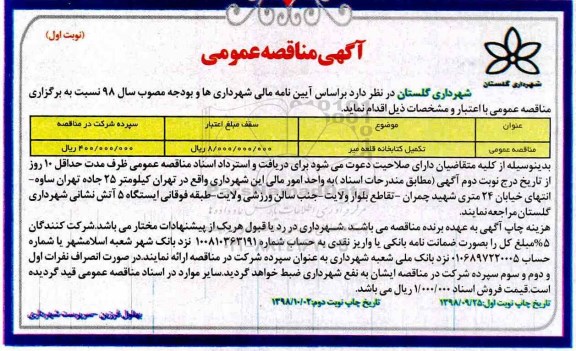 (نوبت اول)
آگهی مناقصه عمومی
شهرداری گلستان
شهرداری گلستان در نظر دارد براساس آیین نامه مالی شهرداری ها و بودجه مصوب سال ۹۸ نسبت به برگزاری
مناقصه عمومی با اعتبار و مشخصات ذیل اقدام نماید.
عنوان موضوع سقف مبلغ اعتبار سپرده شرکت در مناقصه
مناقصه عمومی تکمیل کتابخانه قلعه میر ۸/۰۰۰/۰۰۰/۰۰۰ ریال ۴۰۰/۰۰۰/۰۰۰ ریال
بدینوسیله از کلیه متقاضیان دارای صلاحیت دعوت می شود برای دریافت و استرداد اسناد مناقصه عمومی ظرف مدت حداقل ۱۰ روز
از تاریخ درج نوبت دوم آگهی (مطابق مندرجات اسناد) به واحد امور مالی این شهرداری واقع در تهران کیلومتر ۲۵ جاده تهران ساوه-
انتهای خیابان ۲۴ متری شهید چمران -تقاطع بلوار ولایت -جنب سالن ورزشی ولایت-طبقه فوقانی ایستگاه ۵ آتش نشانی شهرداری
گلستان مراجعه نمایند.
هزینه چاپ آگهی به عهده برنده مناقصه می باشد. شهرداری در رد یا قبول هریک از پیشنهادات مختار می باشد. شرکت کنندگان
۵% مبلغ کل را بصورت ضمانت نامه بانکی یا واریز نقدی به حساب شماره ۱۰۰۸۱۰۳۶۳۱۹۱ نزد بانک شهر شعبه اسلامشهر یا شماره
حساب ۰۱۰۶۸۹۷۲۲۰۰۰۵ نزد بانک ملی شعبه شهرداری به عنوان سپرده شرکت در مناقصه ارائه نمایند. در صورت انصراف نفرات اول
و دوم و سوم سپرده شرکت در مناقصه ایشان به نفع شهرداری ضبط خواهد گردید. سایر موارد در اسناد مناقصه عمومی قید گردیده
است. قیمت فروش اسناد ۱/۰۰۰/۰۰۰ ریال می باشد.
تاریخ چاپ نوبت اول: ۱۳۹۸/۰۹/۲۵ تاریخ چاپ نوبت دوم: ۱۳۹۸/۱۰/۰۲
بهلول فرزین -سرپرست شهرداری